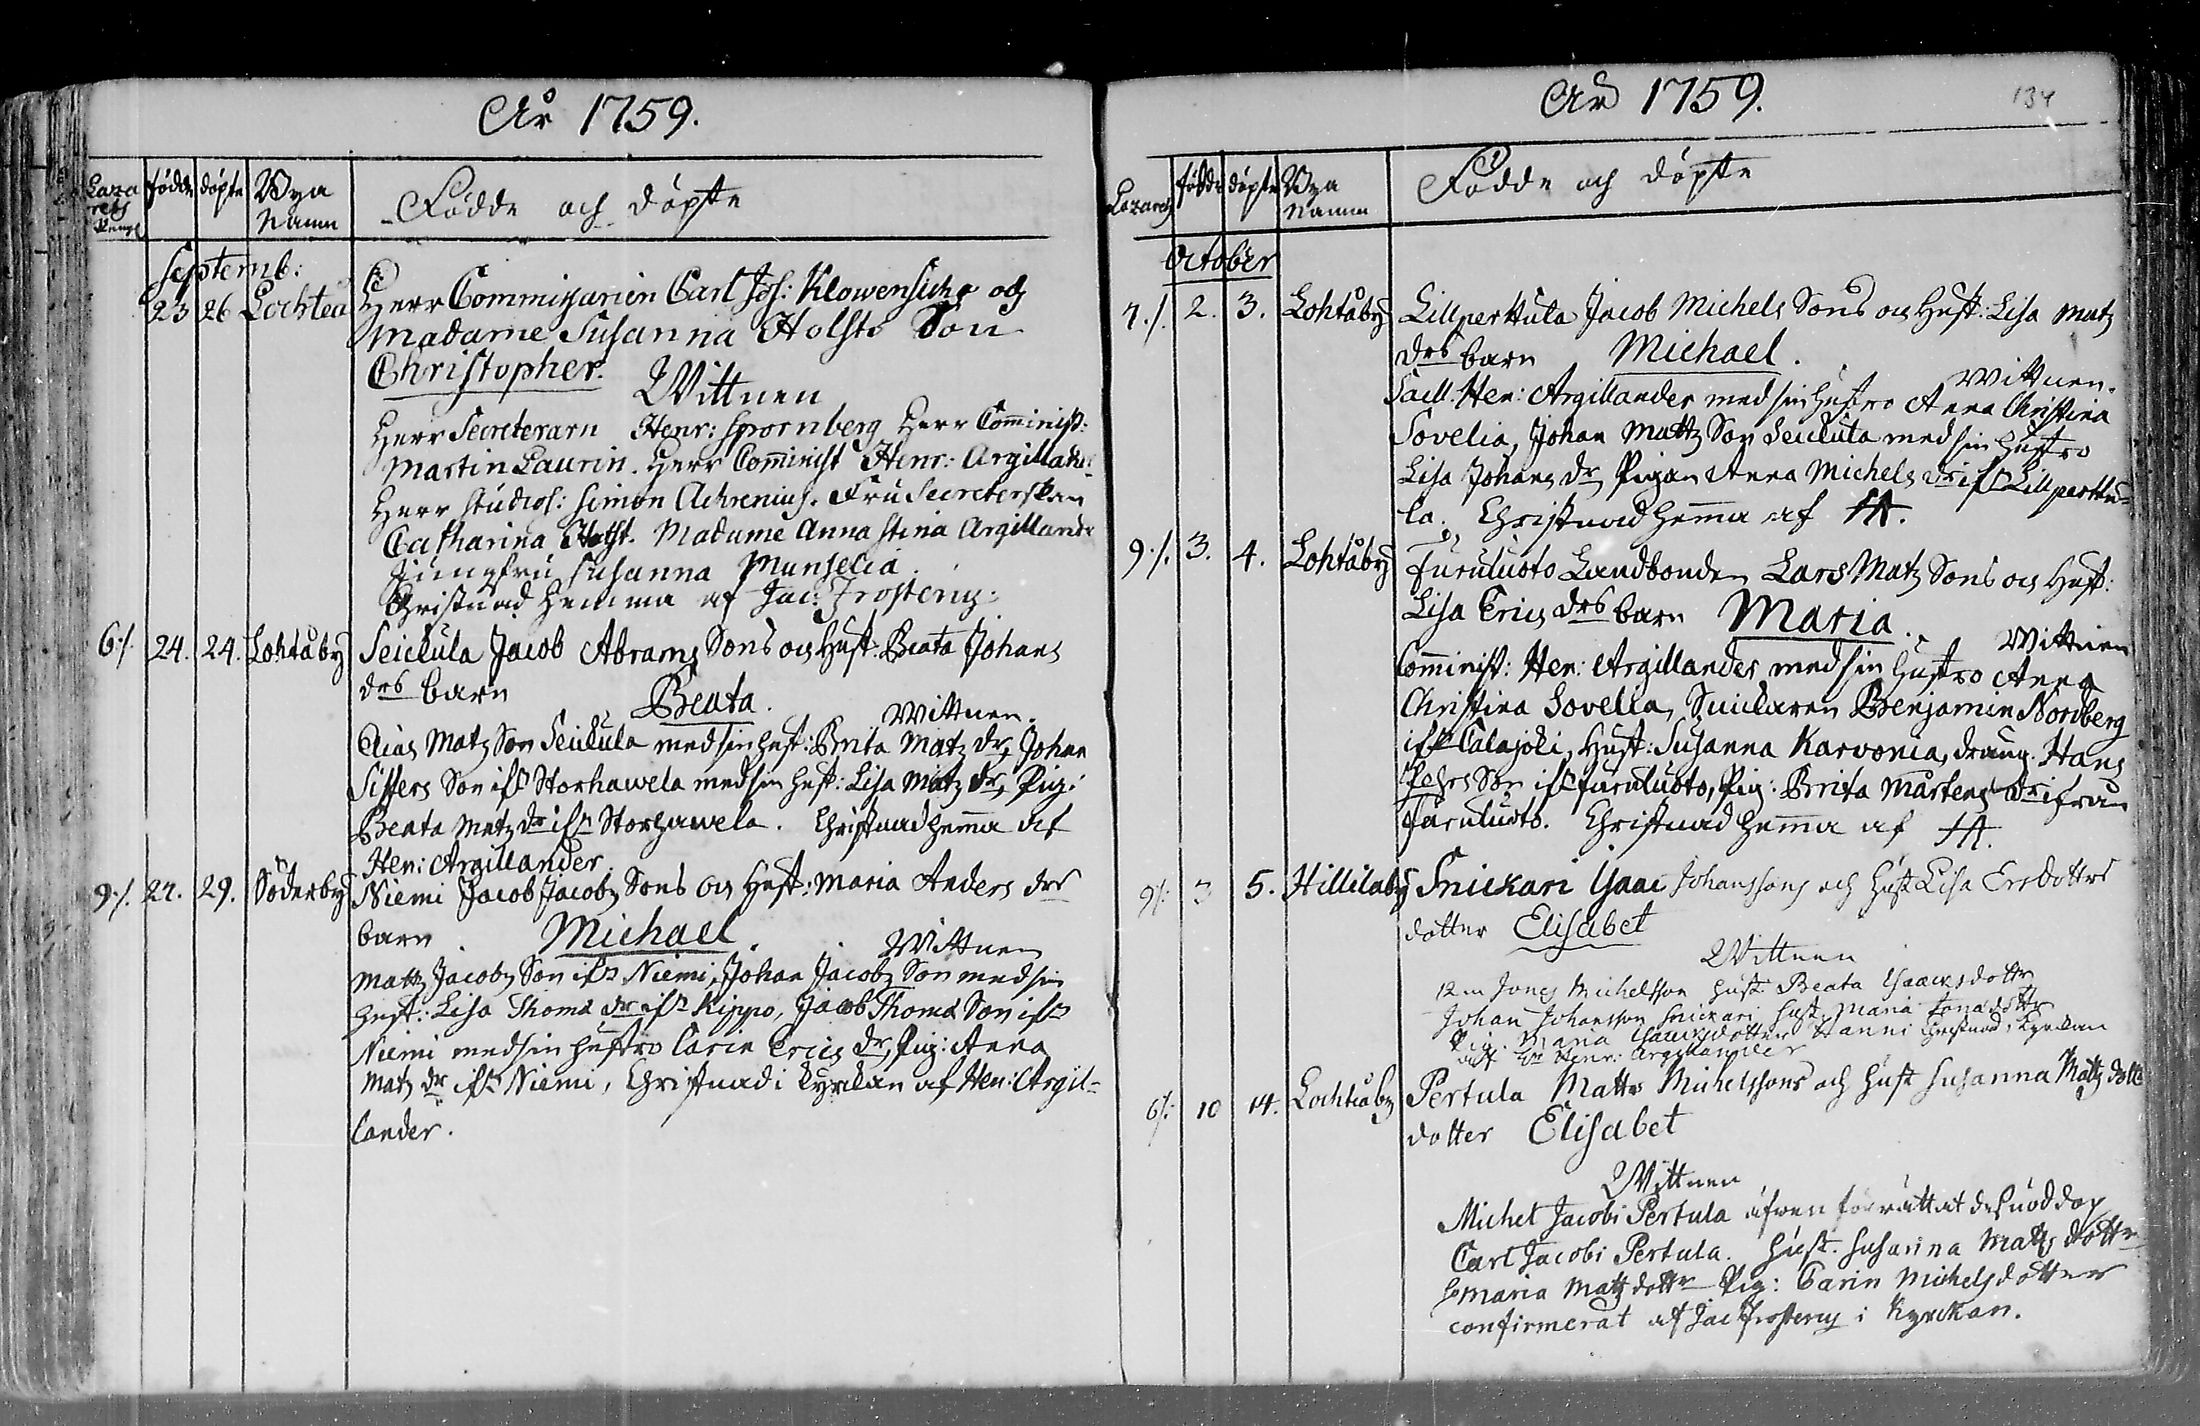 År 1759.
Laza födde döpte Bya Födde och döpte
rets Namn
Septemb:
23 26 Lochteå Herr Commissarien Carl Joh: Klowensichs och
Madame Susanna Holsts Son
Christopher.
Wittnen
Herr Secreterarn Henr: Spornberg Herr Com̄inist:
Martin Laurin. Herr Com̄inist Henr: Argillander
Herr Studios: Simon Achrenius. Fru Secreterskan
Catharina Holst. Madame Anna Stina Argillander
Jungfru Susanna Munselia.
Christnad hemma af Jac: Frosterus.
6./. 24. 24. Lohtåby Seickula Jacob Abrams Sons och Hust: Beata Johans
drs barn Beata.
Wittnen.
Clas Matz Son Seickula med sin hust: Brita Matz dr, Johan
Siffers Son ifr Storhawela med sin hust: Lisa Matz dr, Pig:
Beata Matz dr ifr Storhawela. Christnad hem̄a af
Hen: Argillander.
9./. 27. 29. Söderby Niemi Jacob Jacobs Sons och Hust: Maria Anders drs
barn Michael.
Wittnen
Matz Jacobs Son ifr Niemi, Johan Jacobs Son med sin
hust: Lisa Thomæ dr ifr Kippo, Jacob Thomæ Son ifr
Niemi med sin hustro Carin Erics dr, Pig: Anna
Matz dr ifr Niemi, Christnad i kyrckan af Hen: Argil-
lander.
År 1759. 134
Lazarets födde döpte Bya Födde och döpte
Namn
October
7./. 2. 3. Lohtåby Lillperttula Jacob Michels Sons och Hust: Lisa Matz
drs barn Michael.
Wittnen.
Sacell. Hen: Argillander med sin hustro Anna Christina
Sovelia, Johan Mattz Son Seickula med sin hustro
Lisa Johans dr Pigan Anna Michels dr ifr Lillperttu-
la. Christnad hem̄a af HA.
9./. 3. 4. Lohtåby Furuluoto Landbonden Lars Matz Sons och Hust:
Lisa Erics drs barn Maria.
Wittnen
Com̄inist: Hen: Argillander med sin hustro Anna
Christina Sovelia, Snickaren Benjamin Nordberg
ifr Calajoki, Hust: Susanna Karvonia, dräng. Hans
Pehrs Son ifr Furuluoto, Pig: Brita Mårtens dr ifrån
Furuluoto. Christnad hem̄a af HA.
9/. 3 5. Hillilaby Snickari Isaac Johanssons och hust Lisa Ersdotters
dotter Elisabet
Wittnen
12 m Jonas Michelsson hust Beata Isaacsdotter
Johan Johansson Snickari hust. Maria Jonædotter
Pig. Maria Isaacsdotter Hanni Christnad i Kyrckan
af Hr Henr: Argillander
6/: 10 14. Lochteåby Pertula Matts Michelssons och hust Susanna Matts dotters
dotter Elisabet
Wittnen
Michel Jacobi Pertula äfwen förrättat dess nöddop
Carl Jacobi Pertula. hust. Susanna Matts dotter
Maria Matts dotter Pig: Carin Michelsdotter
confirmerat af Jac Frosterus i kyrckan.